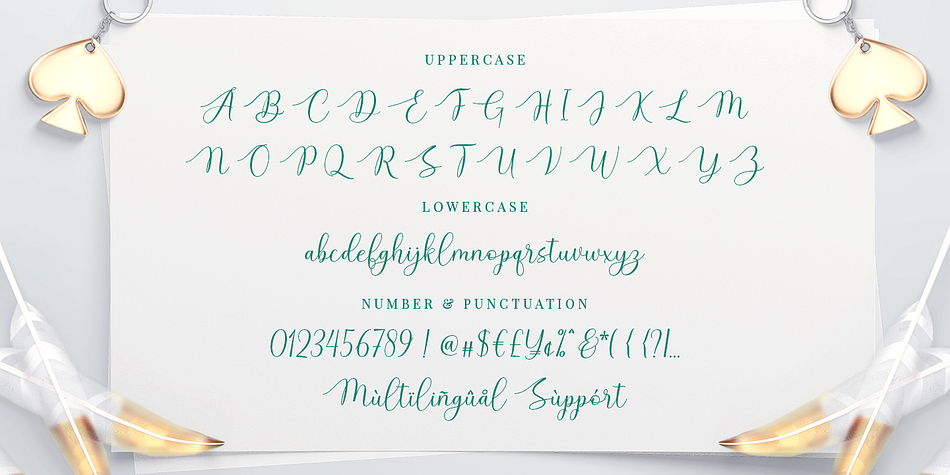 UPPERCASE
A B C D E F G H I J K L M
N O P Q R S T U V W X Y Z
LOWERCASE
abcdefghijklmnopqrstuvwxyz
NUMBER & PUNCTUATION
0123456789 ! @#$€£¥¢%^&*( { {?|...
Mùltïlïñgûål Sùppórt